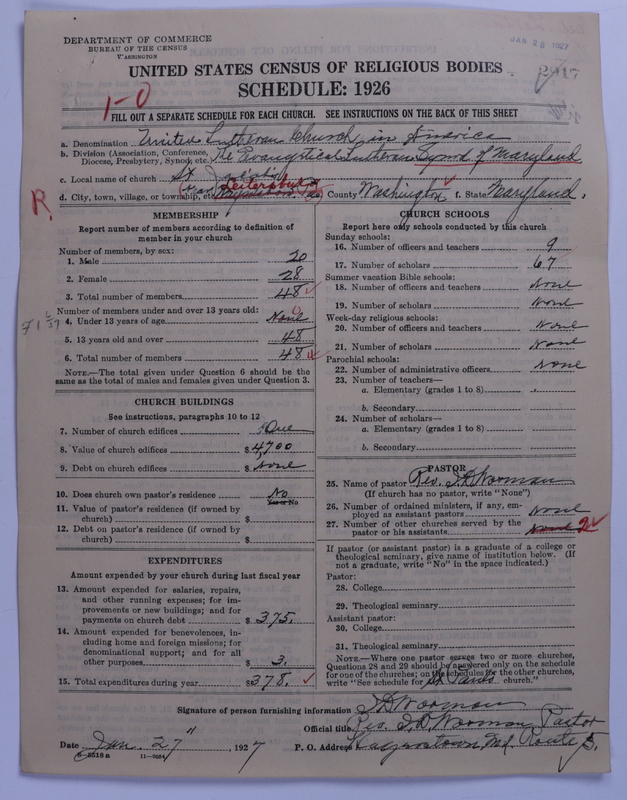 DEPARTMENT OF COMMERCE
BUREAU OF THE CENSUS
WASHINGTON
JAN 28 1927
2917
UNITED STATES CENSUS OF RELIGIOUS BODIES
SCHEDULE: 1926
1-0
FILL OUT A SEPARATE SCHEDULE FOR EACH CHURCH. SEE INSTRUCTIONS ON THE BACK OF THIS SHEET
a. Denomination United Lutheran Church in America
b. Division (Association, Conference, Diocese, Presbytery, Synod, etc. The Evangelical Lutheran Synod of Maryland
c. Local name of church St
d. City, town, village, or township, etc. Leitersburg e. County Washington f. State Maryland.
R.
MEMBERSHIP
Report number of members according to definition of
member in your church
Number of members, by sex:
1. Male 20
2. Female 28
3. Total number of members 48
Number of members under and over 13 years old:
4. Under 13 years of age None 0
5. 13 years old and over 48
6. Total number of members 48
NOTE.—The total given under Question 6 should be the
same as the total of males and females given under Question 3.
CHURCH BUILDINGS
See instructions, paragraphs 10 to 12
7. Number of church edifices One
8. Value of church edifices $ 4,700
9. Debt on church edifices $ None
10. Does church own pastor's residence No
Yes or No
11. Value of pastor's residence (if owned by
church) $
12. Debt on pastor's residence (if owned by
church) $
EXPENDITURES
Amount expended by your church during last fiscal year
13. Amount expended for salaries, repairs,
and other running expenses; for im-
provements or new buildings; and for
payments on church debt $ 375.
14. Amount expended for benevolences, in-
cluding home and foreign missions; for
denominational support; and for all
other purposes $ 3.
15. Total expenditures during year $ 378.
CHURCH SCHOOLS
Report here only schools conducted by this church
Sunday schools:
16. Number of officers and teachers 9
17. Number of scholars 67
Summer vacation Bible schools:
18. Number of officers and teachers None
19. Number of scholars None
Week-day religious schools:
20. Number of officers and teachers None
21. Number of scholars None
Parochial schools:
22. Number of administrative officers None
23. Number of teachers—
a. Elementary (grades 1 to 8)
b. Secondary
24. Number of scholars—
a. Elementary (grades 1 to 8)
b. Secondary
PASTOR
25. Name of pastor Rev. I.D. Worman
(If church has no pastor, write "None")
26. Number of ordained ministers, if any, em-
ployed as assistant pastors None
27. Number of other churches served by the
pastor or his assistants None 2
If pastor (or assistant pastor) is a graduate of a college or
theological seminary, give name of institution below. (If
not a graduate, write "No" in the space indicated.)
Pastor:
28. College
29. Theological seminary
Assistant pastor:
30. College
31. Theological seminary
NOTE.—Where one pastor serves two or more churches,
Questions 28 and 29 should be answered only on the schedule
for one of the churches; on the schedules for the other churches,
write "See schedule for St Pauls church."
Signature of person furnishing information I D Worman
Official title Rev. I.D. Worman, Pastor
Date Jan. 27", 1927 P. O. Address Hagerstown, Md Route 5.
8-5518 a